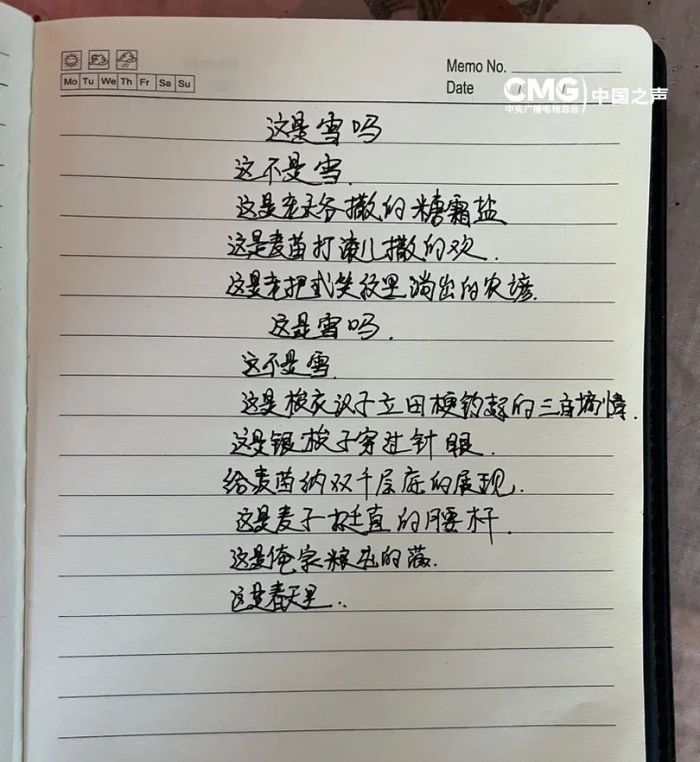 Memo No.
Mo Tu We Th Fr Sa Su
Date / /
CMG 中国之声
中央广播电视总台
这是雪吗
这不是雪.
这是老天爷撒的糖霜盐
这是麦苗打滚儿撒的欢.
这是老把式笑纹里淌出的农谚.
这是雪吗.
这不是雪.
这是梭子立田梗的三
这是银梭子穿过针眼.
给麦苗纳双千层底的展现.
这是麦子挺直的腰杆.
这是俺家粮仓的
这是春天里..